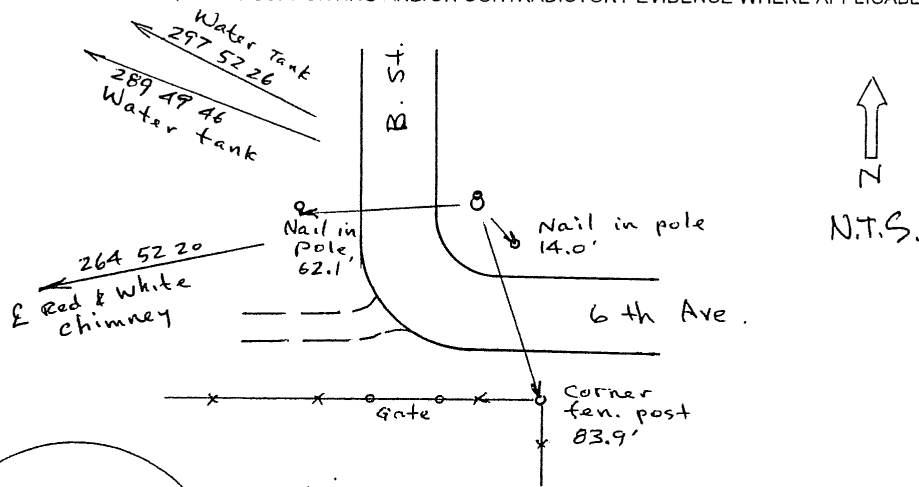 Water Tank
297 52 26
289 49 46
Water tank
B. St.
N
N.T.S.
Nail in
Pole
62.1'
Nail in pole
14.0'
264 52 20
Red & White
Chimney
6 th Ave.
Gate
Corner
fen. post
83.9'